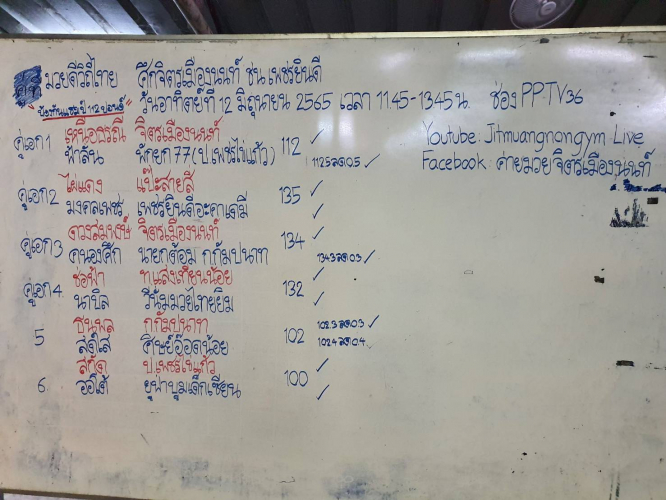 มวยดีวิถีไทย ศึกจิตรเมืองนนท์ ชน เพชรยินดี
"ป้องกันแชมป์ 112 ปอนด์" วันอาทิตย์ที่ 12 มิถุนายน 2565 เวลา 11.45-13.45 น. ช่อง PPTV36
คู่เอก 1 เหนือธรณี จิตรเมืองนนท์ 112 ✓
ฟ้าลั่น พักยก77 (ป.เพชรไข่แก้ว) 112.5 ลด 0.5 ✓
Youtube: Jitmuangnongym Live
Facebook: ค่ายมวย จิตรเมืองนนท์
คู่เอก 2 ไผ่แดง แป๊ะสายสี 135 ✓
มงคลเพชร เพชรยินดีอะคาเดมี่ ✓
คู่เอก 3 ดวงสมพงษ์ จิตรเมืองนนท์ 134 ✓
คนองศึก นายกต้อม ก.กัมปนาท 134.3 ลด 0.3 ✓
คู่เอก 4 ช่อฟ้า ท.แสงเทียนน้อย 132 ✓
นาบิล วีนั่มมวยไทยยิม ✓
5 ธนพล ก.กัมปนาท 102 102.3 ลด 0.3 ✓
สดใส ศิษย์อ๊อดน้อย 102.4 ลด 0.4 ✓
6 สกัด ป.เพชรไข่แก้ว 100 ✓
ออโต้ ยูนำบุมเด็กเซียน ✓